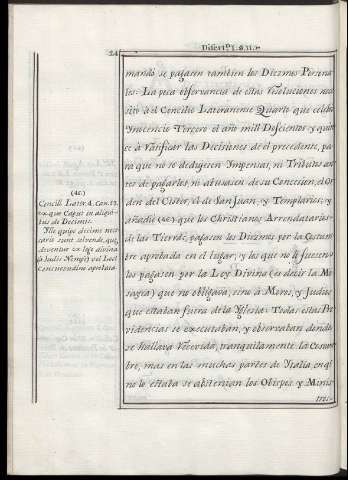 24
Disert.ⁿ I. §. II.
mandò se pagasen tambien los Diezmos Persona-
les: La poca observancia de estas resoluciones nece-
sitò à el Concilio Lateranense Quarto que celebrò
Inocencio Tercero el año mill Doscientos y quin-
se à ratificar las Decisiones de el precedente, pa-
ra que no se dedujesen Impensas, ni Tributos an-
tes de pagarlos, ni abusasen de su Concesion, el Or-
den del Cister, el de San Juan, y Templarios; y
añadiò que los Christianos Arrendatarios
de las Tierras pagasen los Diezmos por la Costum-
bre aprobada en el lugar; y los que no lo fuesen
los pagasen por la Ley Divina (es decir la Mo-
sayca) que no obligava, sino à Moros, y Judios
que estaban fuera de la Yglesia: Todas estas Pro-
videncias se executaban, y observaban donde
se hallava recevida, tranquilamente la Costum-
bre, mas en las muchas partes de Ytalia, en q.
no lo estaba se abstenian los Obispos, y Minis-
tros
Concil. Later. 4. Can.
in aliqui-
bus de Decimis.
Ylle quippe decimæ nece-
sario sunt solvendæ, quæ
deventur ex lege divina
vel Loci
Consuetudine aprobata.